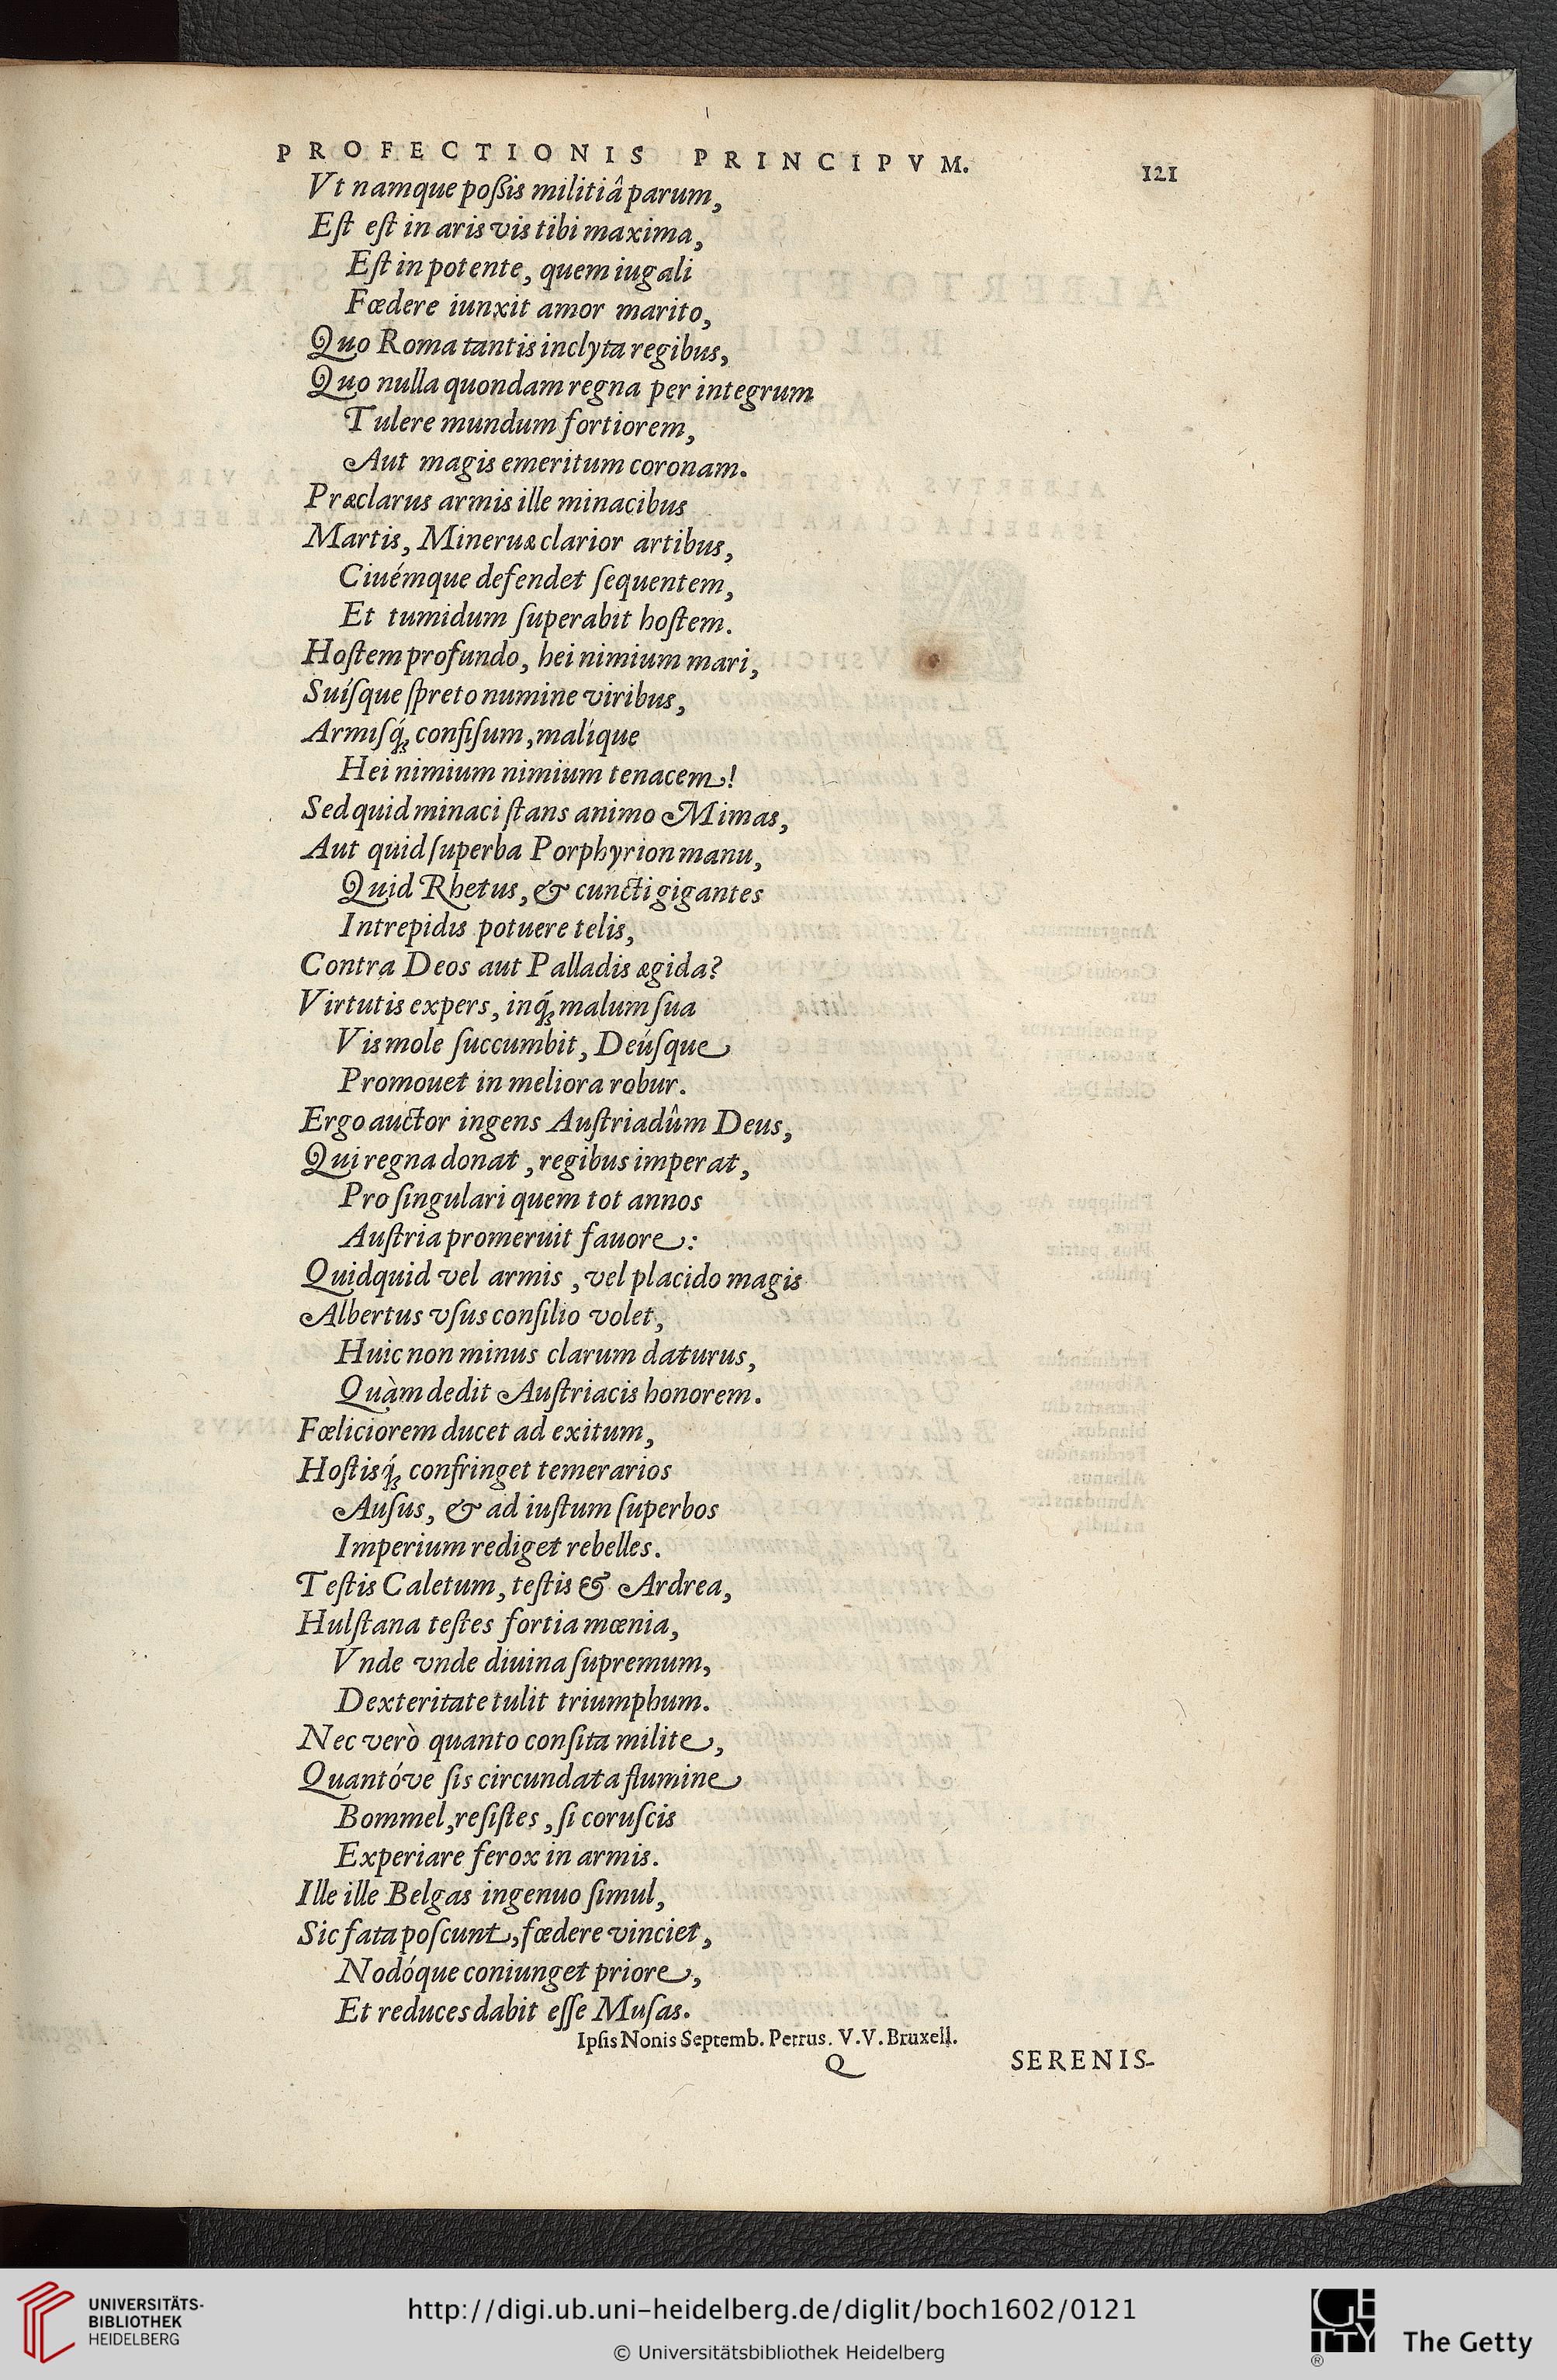 PROFECTIONIS PRINCIPVM. 121
Vt namque poßis militiâ parum,
Eſt eſt in aris vis tibi maxima,
Eſt in potente, quem iugali
Fœdere iunxit amor marito,
Quo Roma tantis inclyta regibus,
Quo nulla quondam regna per integrum
Tulere mundum fortiorem,
Aut magis emeritum coronam.
Præclarus armis ille minacibus
Martis, Mineruæ clarior artibus,
Ciuémque defendet ſequentem,
Et tumidum ſuperabit hoſtem.
Hoſtem profundo, hei nimium mari,
Suíſque ſpreto numine viribus,
Armiſq́; confiſum, malíque
Hei nimium nimium tenacem!
Sed quid minaci ſtans animo Mimas,
Aut quid ſuperba Porphyrion manu,
Quid Rhetus, & cuncti gigantes
Intrepidis potuere telis,
Contra Deos aut Palladis ægida?
Virtutis expers, inq́; malum ſua
Vis mole ſuccumbit, Deúſque
Promouet in meliora robur.
Ergo auctor ingens Auſtriadûm Deus,
Qui regna donat, regibus imperat,
Pro ſingulari quem tot annos
Auſtria promeruit fauore:
Quidquid vel armis, vel placido magis
Albertus vſus conſilio volet,
Huic non minus clarum daturus,
Quàm dedit Auſtriacis honorem.
Fœliciorem ducet ad exitum,
Hoſtisq́; confringet temerarios
Auſus, & ad iuſtum ſuperbos
Imperium rediget rebelles.
Teſtis Caletum, teſtis & Ardrea,
Hulſtana teſtes fortia mœnia,
Vnde vnde diuina ſupremum,
Dexteritate tulit triumphum.
Nec verò quanto conſita milite,
Quantóve ſis circundata flumine
Bommel, reſiſtes, ſi coruſcis
Experiare ferox in armis.
Ille ille Belgas ingenuo ſimul,
Sic fata poſcunt, fœdere vinciet,
Nodóque coniunget priore,
Et reduces dabit eſſe Muſas.
Ipſis Nonis Septemb. Petrus. V.V. Bruxell.
Q SERENIS-
UNIVERSITÄTS-
BIBLIOTHEK
HEIDELBERG
http://digi.ub.uni-heidelberg.de/diglit/boch1602/0121
© Universitätsbibliothek Heidelberg
GETTY
®
The Getty